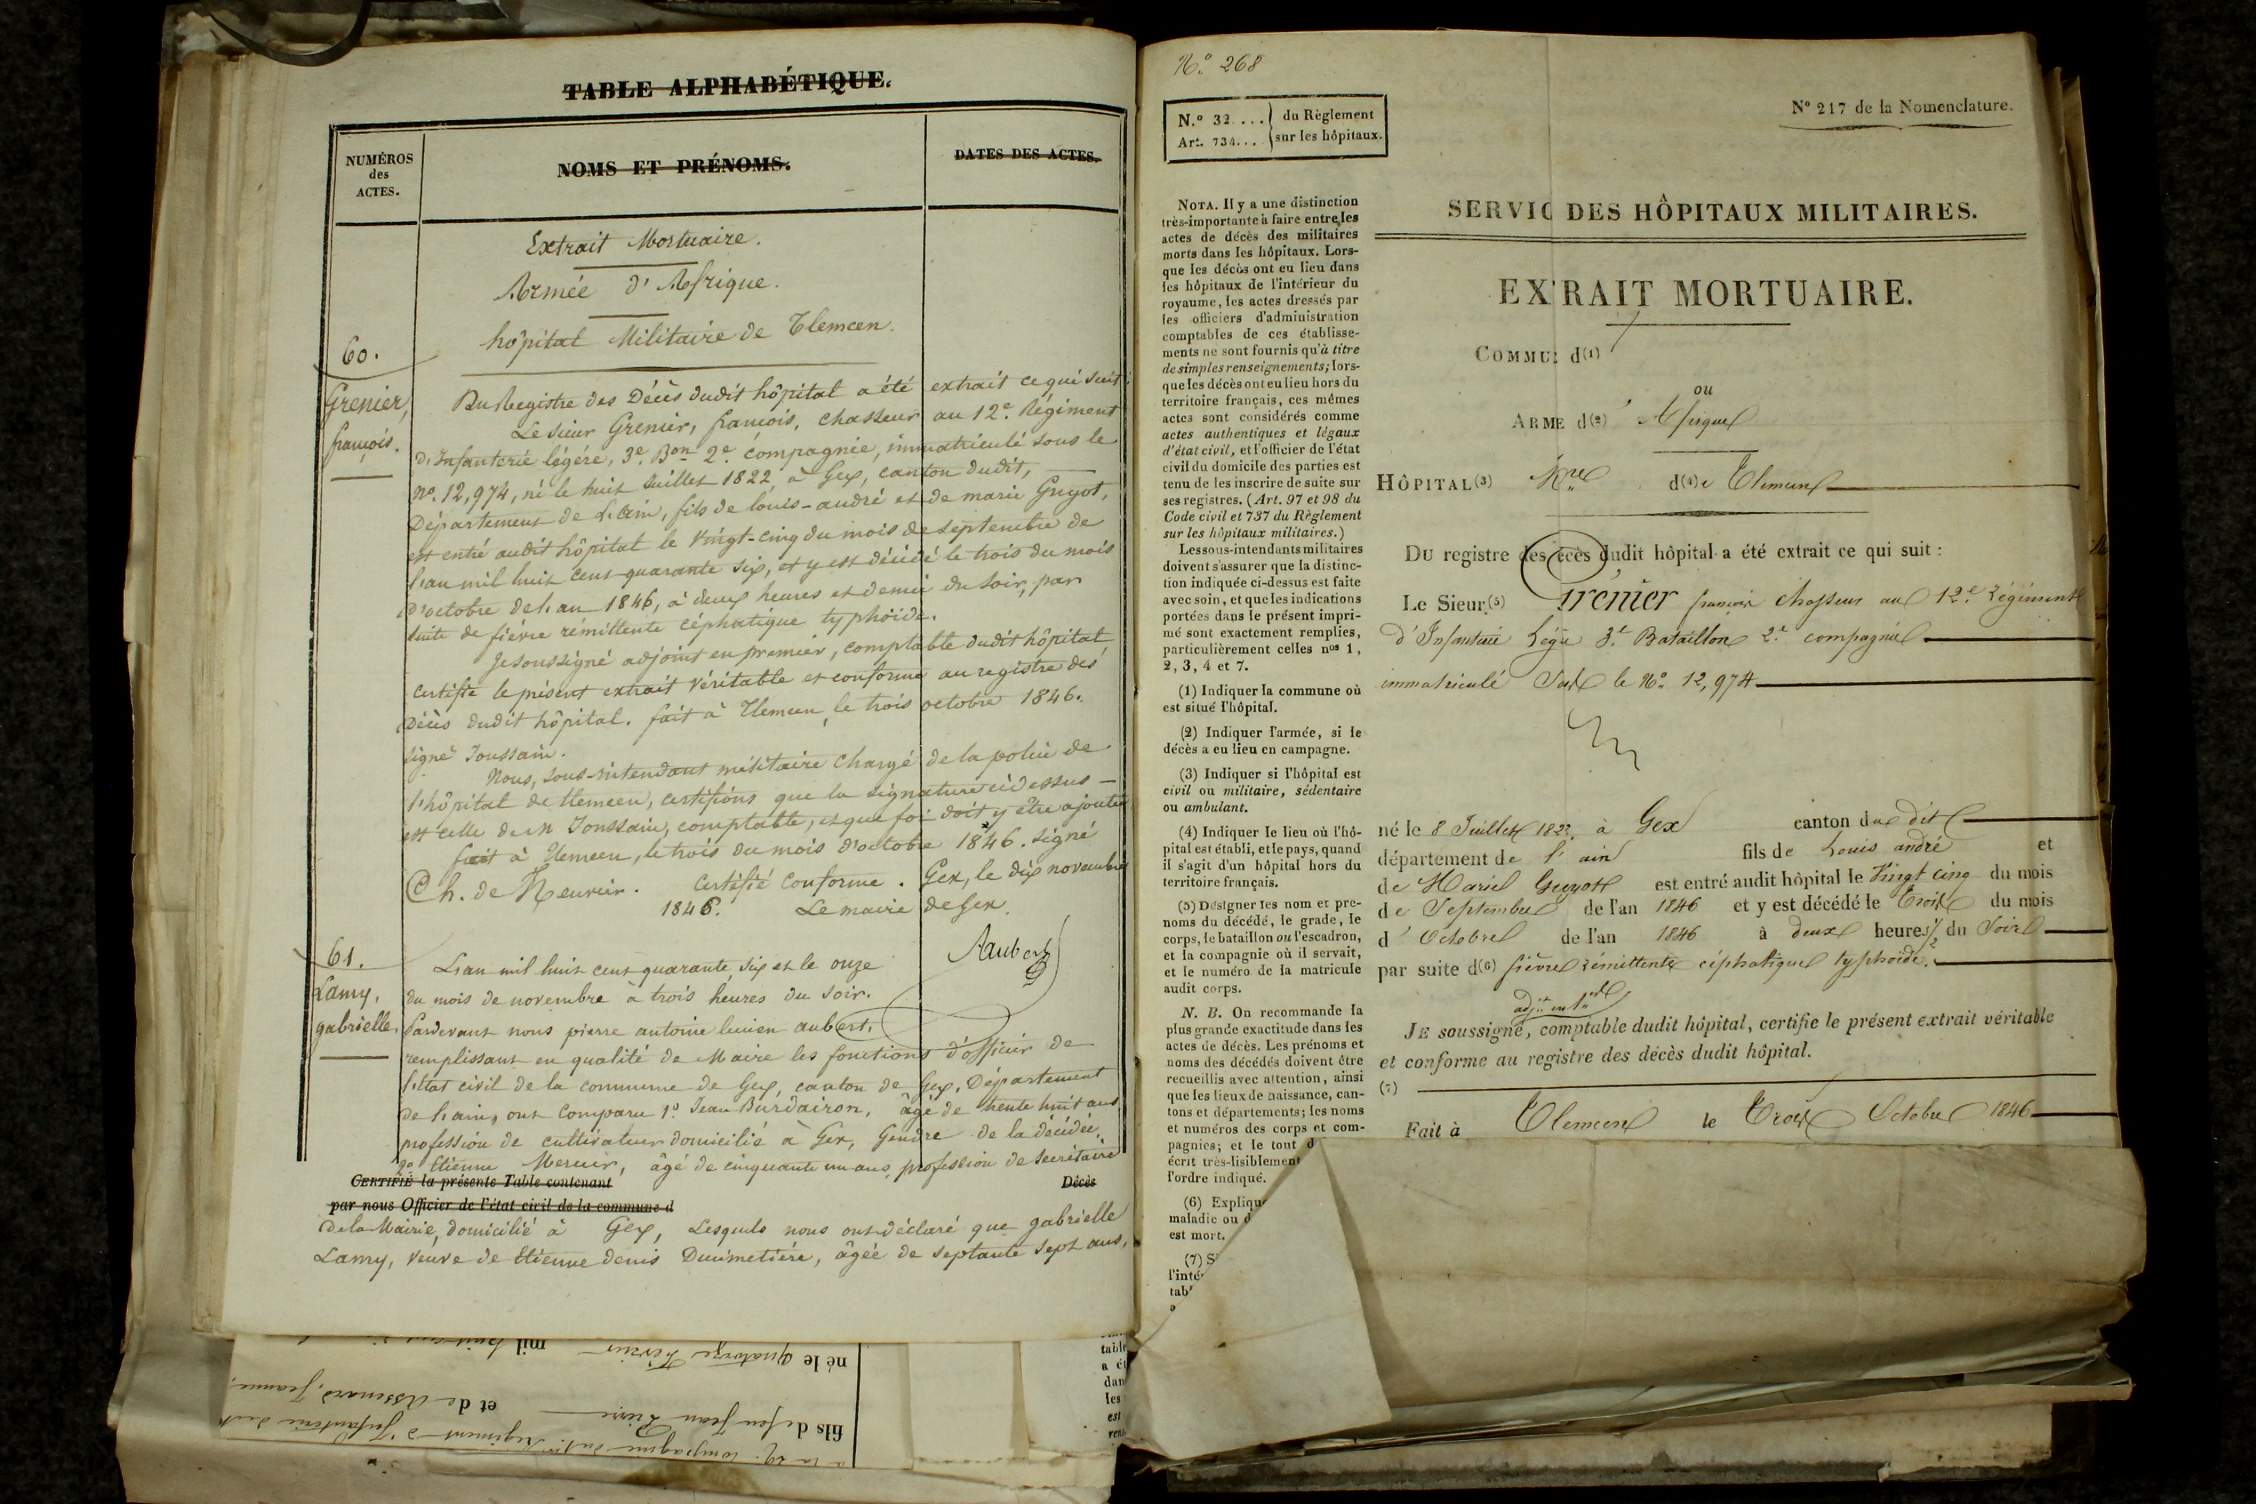 TABLE ALPHABÉTIQUE.
NUMÉROS
des
ACTES.
NOMS ET PRÉNOMS.
DATES DES ACTES.
Extrait Mortuaire.
Armée d'Afrique.
hôpital Militaire de Tlemcen.
60.
Grenier,
françois.
Du Registre des Décès dudit hôpital a été extrait ce qui suit :
Le sieur Grenier, françois, chasseur au 12e. Régiment
d'Infanterie légére, 3e. Bon 2e. compagnie, immatriculé sous le
No. 12,974, né le huit Juillet 1822, à Gex, canton dudit,
Département de l'ain, fils de louis-andré et de marie Guyot,
est entré audit hôpital le vingt-cinq du mois de septembre de
l'an mil huit cent quarante six, et y est décédé le trois du mois
d'octobre de l'an 1846, à deux heures et demie du soir, par
suite de fiévre rémittente céphatique typhoïde.
Je soussigné adjoint en premier, comptable dudit hôpital,
certifie le présent extrait véritable et conforme au registre des
Décès dudit hôpital. fait à Tlemcen, le trois octobre 1846.
signé Joussain.
Nous, sous-intendant militaire chargé de la police de
l'hôpital de tlemcen, certifions que la signature ci dessus
est celle de M Joussain, comptable, et que foi doit y être ajoutée
fait à Tlemcen, le trois du mois d'octobre 1846. signé
Ch. de certifié conforme. Gex, le dix novembre
1846. Le maire de Gex.
Aubert
61.
Lamy,
gabrielle.
L'an mil huit cent quarante six et le onze
du mois de novembre à trois heures du soir.
Pardevant nous pierre antoine lucien aubert,
remplissant en qualité de Maire les fonctions d'officier de
l'état civil de la commune de Gex, canton de Gex, Département
de l'ain, ont comparu 1o. Jean Burdairon, âgé de trente huit ans
profession de cultivateur domicilié à Gex, Gendre de la décédée,
2o Etienne Mercier, âgé de cinquante un ans, profession de secrétaire
CERTIFIÉ la présente Table contenant Décès
par nous Officier de l'état civil de la commune d
de la Mairie, domicilié à Gex, Lesquels nous ont déclaré que gabrielle
Lamy, veuve de Etienne denis Ducimetiére, âgée de septante sept ans,
né le quatorze février mil huit cent
fils de feu Jean Pierre et de Jeanne
compagnie régiment d'Infanterie
No. 268
N.o 32.... du Règlement
Art. 734... sur les hôpitaux.
No 217 de la Nomenclature.
SERVIC DES HÔPITAUX MILITAIRES.
EXTRAIT MORTUAIRE.
COMMU: d(1)
ou
ARME d(2) Afrique
HÔPITAL(3) Mre d(4)e Tlemcen
DU registre des écès dudit hôpital a été extrait ce qui suit :
Le Sieur(5) Grenier françois chasseur au 12e. Régiment
d'Infanterie Légre 3e. Bataillon 2e. compagnie
immatriculé sous le No. 12,974
né le 8 Juillet 1822 à Gex canton du dit
département de l'ain fils de Louis andré et
de Marie Guyot est entré audit hôpital le Vingt cinq du mois
de Septembre de l'an 1846 et y est décédé le Trois du mois
d'Octobre de l'an 1846 à deux heures 1/2 du Soir
par suite d(6) fiévre rémittente céphatique typhoïde.
adjt. en 1er
JE soussigné, comptable dudit hôpital, certifie le présent extrait véritable
et conforme au registre des décès dudit hôpital.
(7)
Fait à Tlemcen le Trois Octobre 1846
NOTA. Il y a une distinction
très-importante à faire entre les
actes de décès des militaires
morts dans les hôpitaux. Lors-
que les décès ont eu lieu dans
les hôpitaux de l'intérieur du
royaume, les actes dressés par
les officiers d'administration
comptables de ces établisse-
ments ne sont fournis qu'à titre
de simples renseignements; lors-
que les décès ont eu lieu hors du
territoire français, ces mêmes
actes sont considérés comme
actes authentiques et légaux
d'état civil, et l'officier de l'état
civil du domicile des parties est
tenu de les inscrire de suite sur
ses registres. (Art. 97 et 98 du
Code civil et 737 du Règlement
sur les hôpitaux militaires.)
Les sous-intendants militaires
doivent s'assurer que la distinc-
tion indiquée ci-dessus est faite
avec soin, et que les indications
portées dans le présent impri-
mé sont exactement remplies,
particulièrement celles nos 1,
2, 3, 4 et 7.
(1) Indiquer la commune où
est situé l'hôpital.
(2) Indiquer l'armée, si le
décès a eu lieu en campagne.
(3) Indiquer si l'hôpital est
civil ou militaire, sédentaire
ou ambulant.
(4) Indiquer le lieu où l'hô-
pital est établi, et le pays, quand
il s'agit d'un hôpital hors du
territoire français.
(5) Désigner les nom et pré-
noms du décédé, le grade, le
corps, le bataillon ou l'escadron,
et la compagnie où il servait,
et le numéro de la matricule
audit corps.
N. B. On recommande la
plus grande exactitude dans les
actes de décès. Les prénoms et
noms des décédés doivent être
recueillis avec attention, ainsi
que les lieux de naissance, can-
tons et départements; les noms
et numéros des corps et com-
pagnies; et le tout d
écrit très-lisiblement
l'ordre indiqué.
(6) Explique
maladie ou d
est mort.
(7) S
l'inté
tab